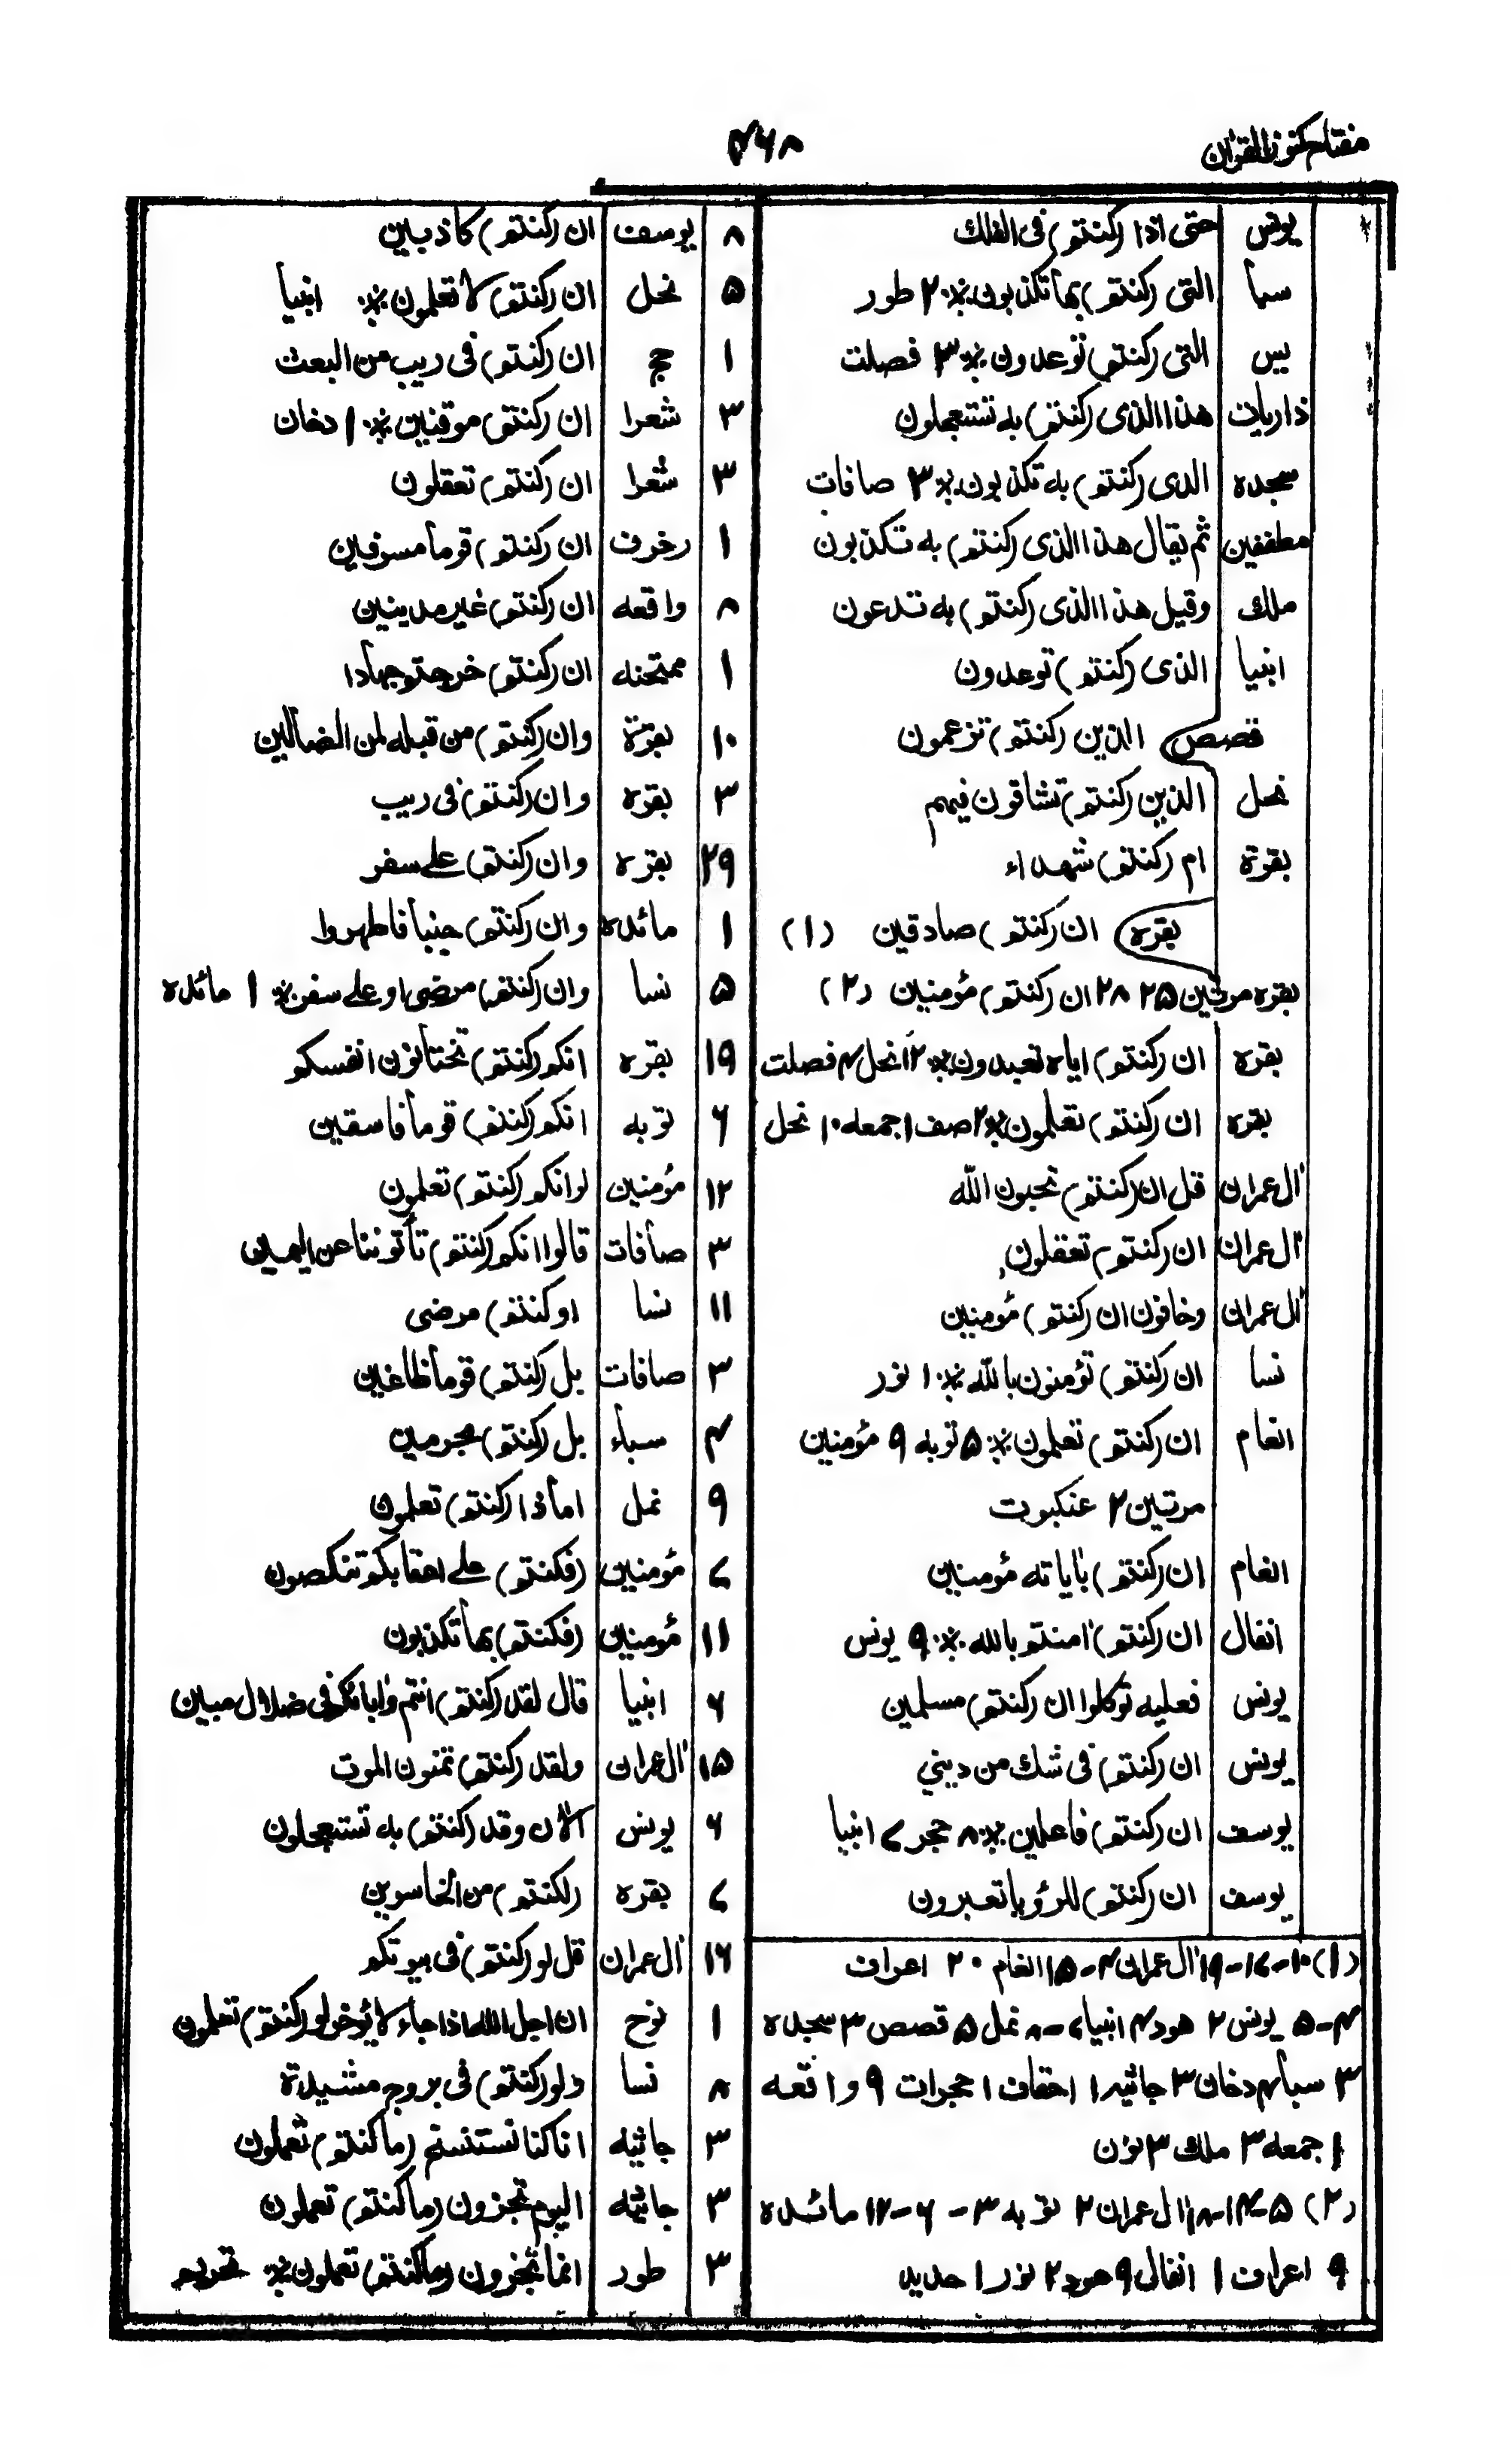 مفتاح كنوز القران
۴۶۸
يونس حتى اذا (كنتم) فى الفلك
سبأ التى (كنتم) بها تكذبون※ ۲ طور
يس التى (كنتم) توعدون※ ۳ فصلت
ذاريات هذا الذى (كنتم) به تستعجلون
سجده الذى (كنتم) به تكذبون※ ۳ صافات
مطففين ثم يقال هذا الذى (كنتم) به تكذبون
ملك وقيل هذا الذى (كنتم) به تدعون
انبيا الذى (كنتم) توعدون
قصص الذين (كنتم) تزعمون
نحل الذين (كنتم) تشاقون فيهم
بقرة ام (كنتم) شهداء
بقره ان (كنتم) صادقين (۱)
بقره مرتين ۲۵ ۲۸ ان (كنتم) مؤمنين (۲)
بقره ان (كنتم) اياه تعبدون※ ۱۲ نحل ۴ فصلت
بقره ان (كنتم) تعلمون※ ۲ صف ۱ جمعه ۱۰ نحل
اٰل عمران قل ان (كنتم) تحبون الله
اٰل عمران ان (كنتم) تعقلون
اٰل عمران وخافون ان (كنتم) مؤمنين
نسا ان (كنتم) تؤمنون بالله※ ۱ نور
انعام ان (كنتم) تعلمون※ ۵ توبه ۹ مؤمنين
مرتين ۲ عنكبوت
انعام ان (كنتم) باٰياته مؤمنين
انفال ان (كنتم) اٰمنتم بالله※ ۹ يونس
يونس فعليه توكلوا ان (كنتم) مسلمين
يونس ان (كنتم) فى شك من ديني
يوسف ان (كنتم) فاعلين※ ۸ حجر ۷ انبيا
يوسف ان (كنتم) للرؤيا تعبرون
(۱) ۱۰-۱۷-۱۹ اٰل عمران ۴-۱۵ انعام ۲۰ اعراف
۴-۵ يونس ۲ هود ۴ انبياء ۷-۸ نمل ۵ قصص ۳ سجده
۳ سبأ ۴ دخان ۳ جاثيه ۱ احقاف ۱ حجرات ۹ واقعه
۱ جمعه ۳ ملك ۳ نون
(۲) ۵-۱۴-۱۸ اٰل عمران ۲ توبه ۳-۶-۱۲ مائده
۹ اعراف ۱ انفال ۹ هود ۲ نور ۱ حديد
۸ يوسف ان (كنتم) كاذبين
۵ نحل ان (كنتم) لا تعلمون※ انبيأ
۱ حج ان (كنتم) فى ريب من البعث
۳ شعرا ان (كنتم) موقنين※ ۱ دخان
۳ شعرا ان (كنتم) تعقلون
۱ زخرف ان (كنتم) قوما مسرفين
۸ واقعه ان (كنتم) غير مدينين
۱ ممتحنه ان (كنتم) خرجتم جهادا
۱۰ بقرة وان (كنتم) من قبله لمن الضالين
۳ بقره وان (كنتم) فى ريب
۲۹ بقره وان (كنتم) على سفر
۱ مائده وان (كنتم) جنبا فاطهروا
۵ نسا وان (كنتم) مرضى او على سفر※ ۱ مائده
۱۹ بقره انكم (كنتم) تختانون انفسكم
۶ توبه انكم (كنتم) قوما فاسقين
۱۲ مؤمنين لو انكم (كنتم) تعلمون
۳ صافات قالوا انكم (كنتم) تأتوننا عن اليمين
۱۱ نسا او كنتم) مرضى
۳ صافات بل (كنتم) قوما طاغين
۴ سباء بل (كنتم) مجرمين
۹ نمل اما ذا (كنتم) تعلمون
۷ مؤمنين (فكنتم) على اعقابكم تنكصون
۱۱ مؤمنين (فكنتم) بها تكذبون
۶ انبيا قال لقد (كنتم) انتم واٰباؤكم فى ضلال مبين
۱۵ اٰل عمران ولقد (كنتم) تمنون الموت
۶ يونس اٰلاٰن وقد (كنتم) به تستعجلون
۷ بقره (لكنتم) من الخاسرين
۱۶ اٰل عمران قل لو (كنتم) فى بيوتكم
۱ نوح ان اجل الله اذا جاء لا يؤخر لو (كنتم) تعلمون
۸ نسا ولو (كنتم) فى بروج مشيدة
۳ جاثيه انا كنا نستنسخ (ما كنتم) تعملون
۳ جاثيه اليوم تجزون (ما كنتم) تعملون
۳ طور انما تجزون (ما كنتم) تعملون※ تحريم